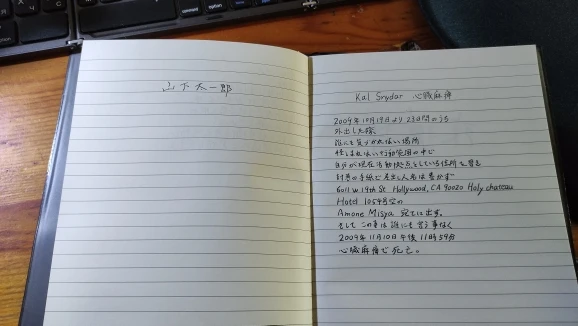 山下太一郎
Kal Snydar 心臓麻痺
2009年10月19日より23日間のうち
外出した際、
誰にも気づかれない場所
怪しまれない行動範囲の中で
自分が現在活動拠点としている住所を書き
封書の手紙で差出し人名は書かず
6011 w 19th St Hollywood, CA 90020 Holy chateau
Hotel 1054号室の
Amane Misya 宛てに出す。
そして この事は誰にも言う事なく
2009年11月10日午後11時59分
心臓麻痺で死亡。